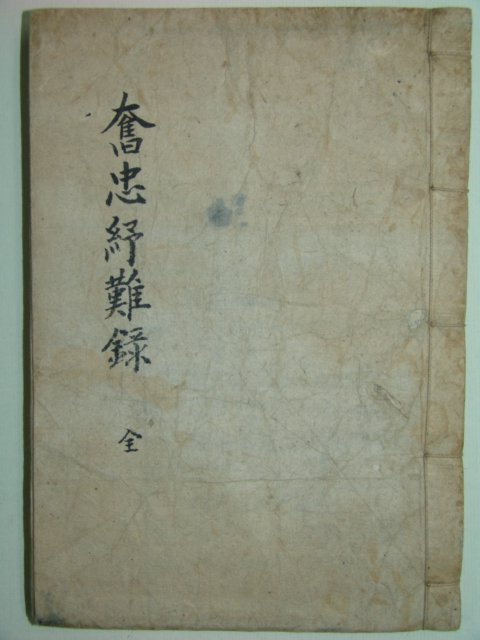 奮忠紓難録
全